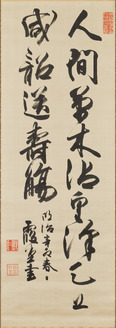 人間草木沾重澤乞
咸韶送壽觴
明治辛卯春日
霞堂書